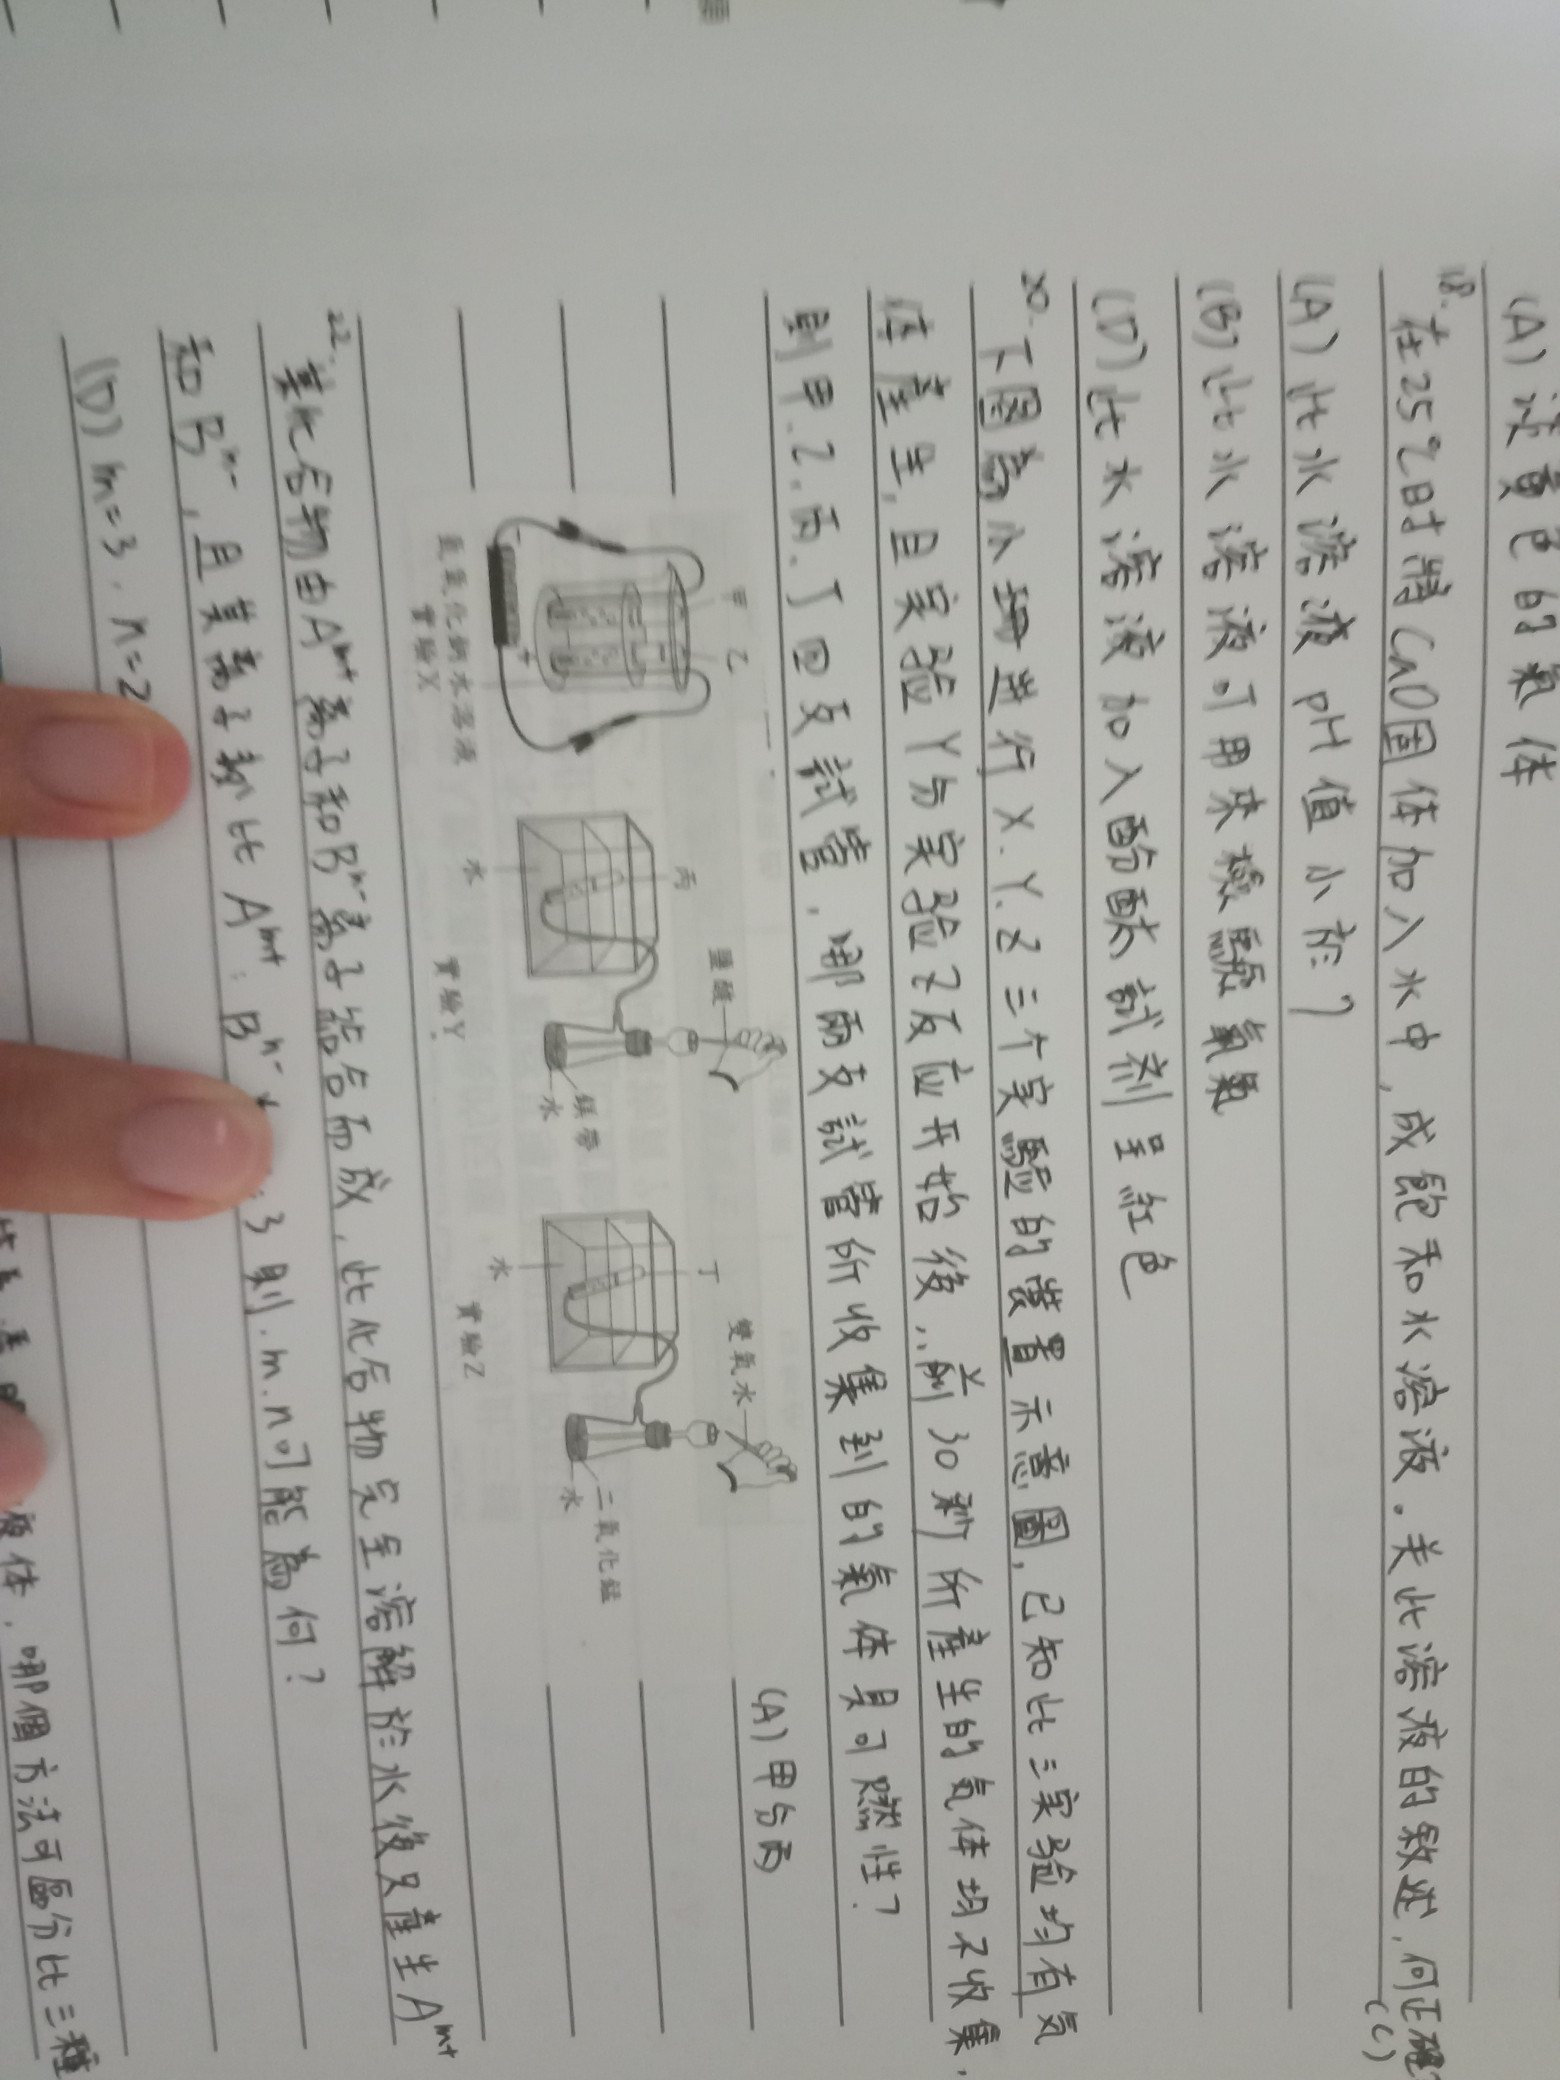 (A) 淡黃色的氣体
18. 在25℃時將CaO固体加入水中，成飽和水溶液。关此溶液的敘述，何正確
(C)
(A) 此水溶液 pH值小於7
(B) 此水溶液可用來檢驗氧氣
(D) 此水溶液加入酚酞試剂呈紅色
20. 下圖為小珊進行X.Y.Z三个实驗的裝置示意圖，已知此三实验均有気
体產生，且实验Y与实验Z反应开始後，前30秒所產生的気体均不收集，
則甲.乙.丙.丁四支試管，哪兩支試管所收集到的氣体具可燃性？
(A) 甲与丙
甲 乙
氫氧化鈉水溶液
實驗X
丙
鹽酸
鎂帶
水
水
實驗Y
丁
雙氧水
二氧化錳
水
水
實驗Z
22. 某化合物由Aᵐ⁺离子和Bⁿ⁻离子結合而成，此化合物完全溶解於水後只產生Aᵐ⁺
和Bⁿ⁻，且莫离子數比Aᵐ⁺：Bⁿ⁻：3 則.m.n可能為何？
(D) m=3，n=2
液体，哪個方法可區分此三種